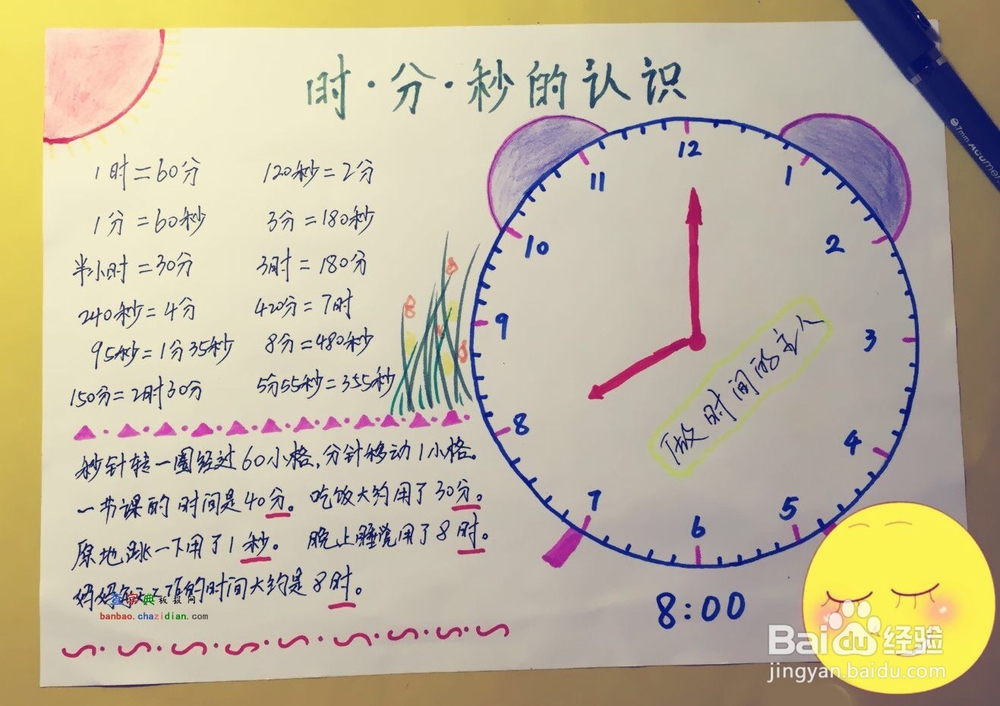 时·分·秒的认识
1时=60分 120秒=2分
1分=60秒 3分=180秒
半小时=30分 3时=180分
240秒=4分 420分=7时
95秒=1分35秒 8分=480秒
150分=2时30分 5分55秒=355秒
秒针转一圈经过60小格,分针移动1小格。
一节课的时间是40分。 吃饭大约用了30分。
原地跳一下用了1秒。 晚上睡觉用了8时。
妈妈每天工作的时间大约是8时。
12
1
2
3
4
5
6
7
8
9
10
11
做时间的主人
8:00
查字典板报网
banbao.chazidian.com
Baidu经验
jingyan.baidu.com
0.7mm